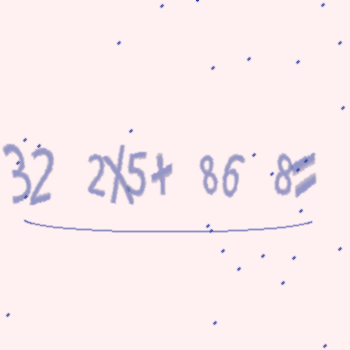 32 2X5+ 86 8=